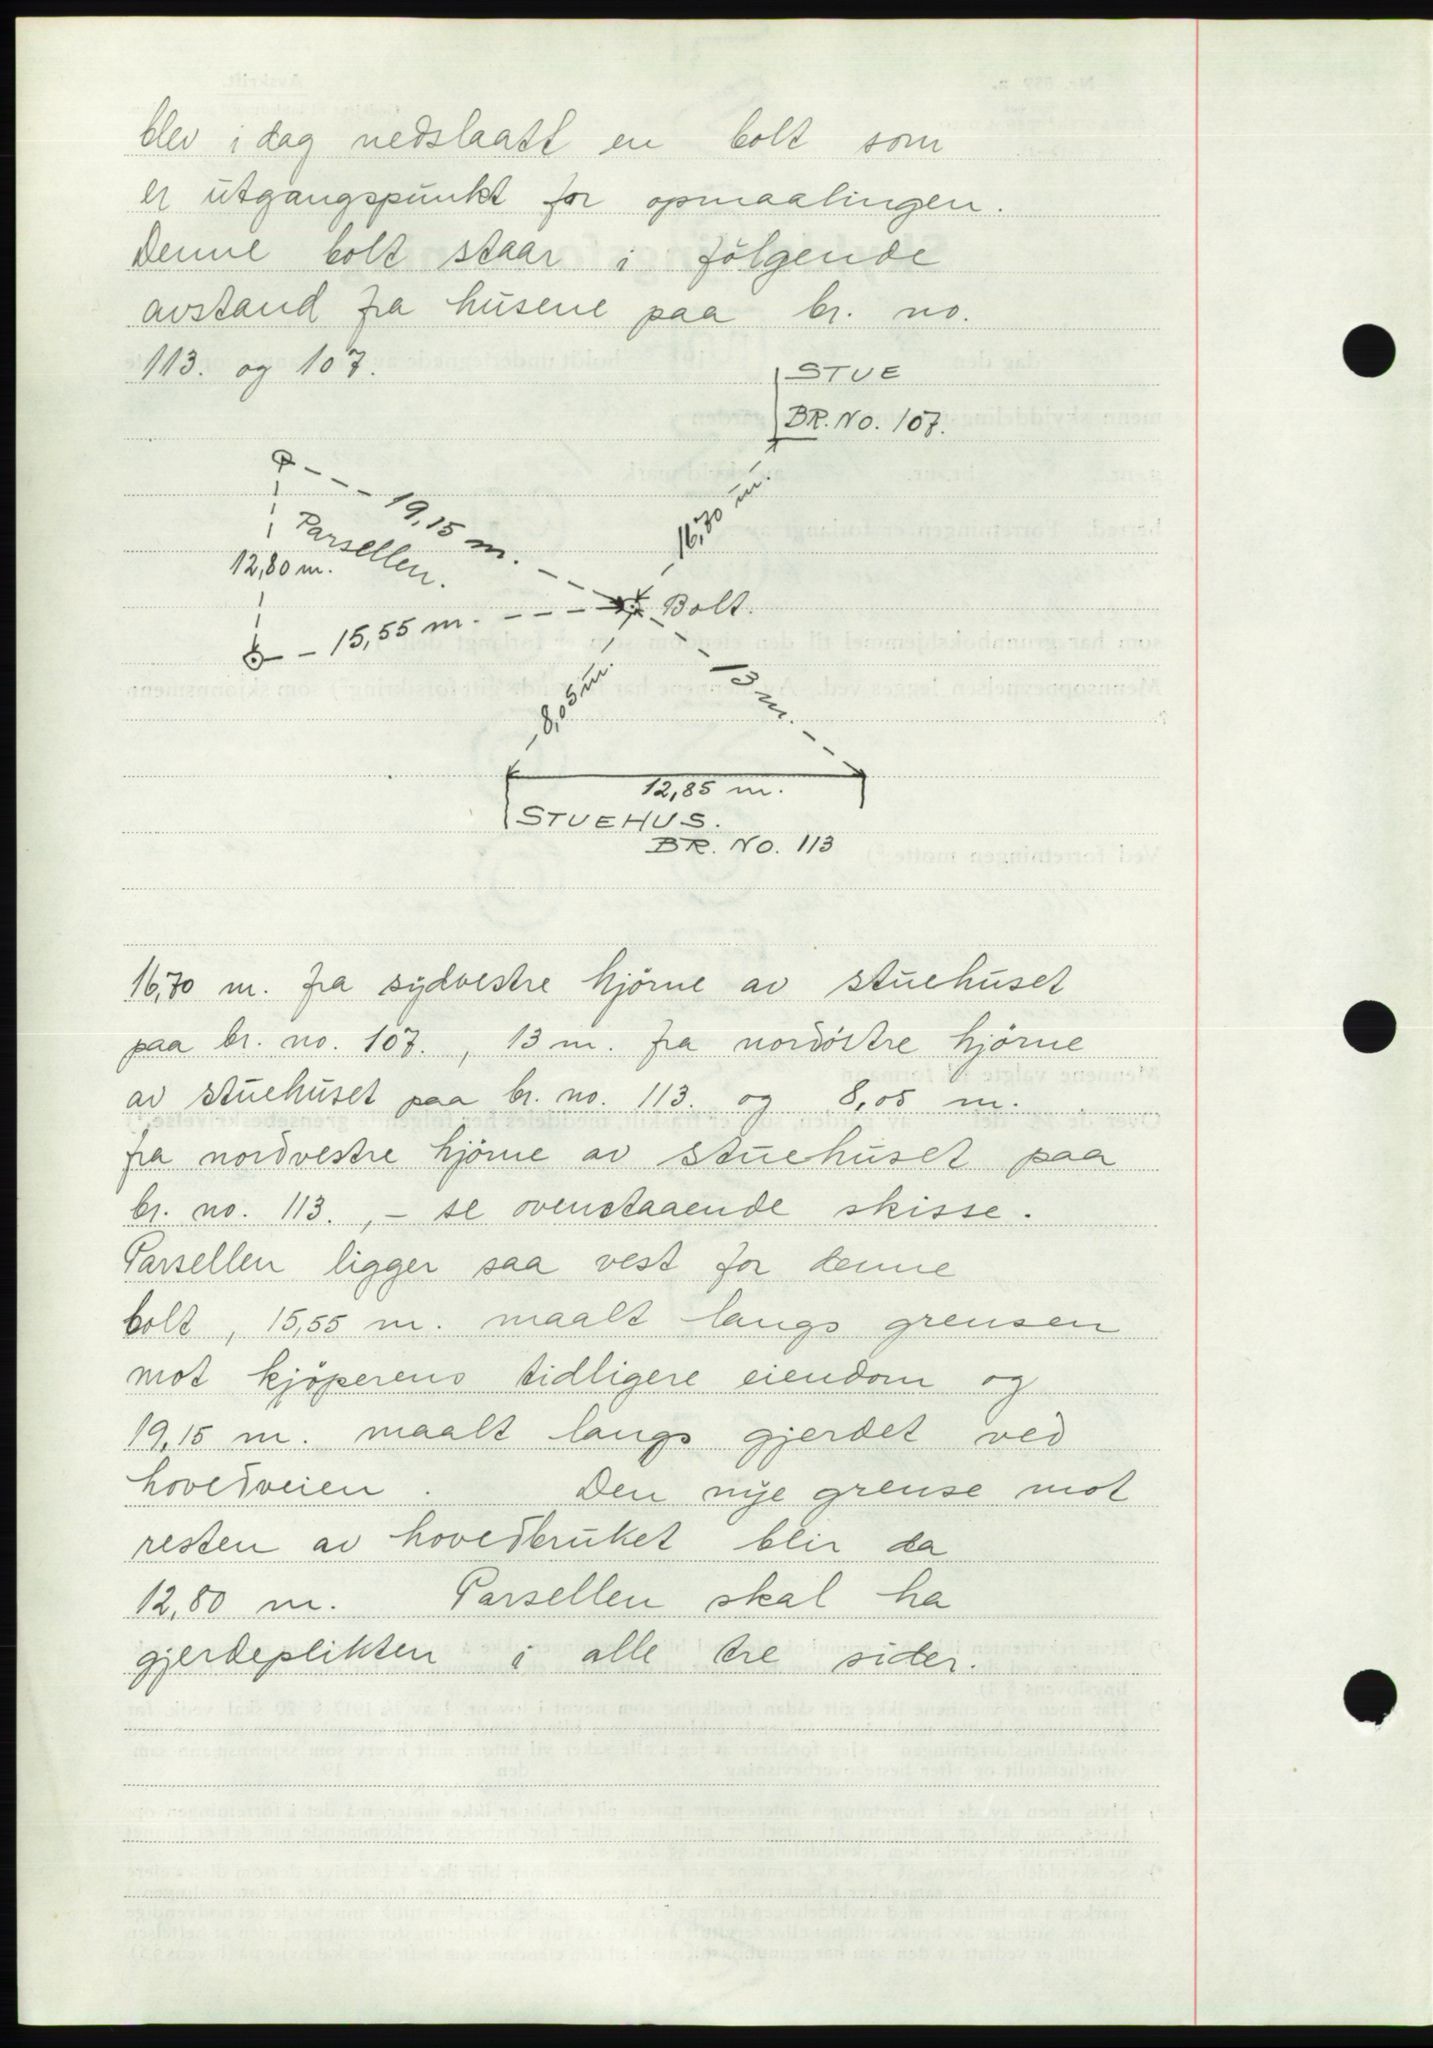 blev i dag nedslaatt en bolt som
er utgangspunkt for opmaalingen.
Denne bolt staar i følgende
avstand fra husene paa br. no.
113. og 107.
STUE
BR. NO. 107.
19,15 m.
16,70 m.
Parsellen.
12,80 m.
Bolt.
15,55 m.
8,05 m.
13 m.
12,85 m.
STUEHUS.
BR. NO. 113
16,70 m. fra sydvestre hjørne av stuehuset
paa br. no. 107., 13 m. fra nordøstre hjørne
av stuehuset paa br. no. 113. og 8,05 m.
fra nordvestre hjørne av stuehuset paa
br. no. 113., - se ovenstaaende skisse.
Parsellen ligger saa vest for denne
bolt, 15,55 m. maalt langs grensen
mot kjøperens tidligere eiendom og
19,15 m. maalt langs gjerdet ved
hovedveien. Den nye grense mot
resten av hovedbruket blir da
12,80 m. Parsellen skal ha
gjerdeplikten i alle tre sider.